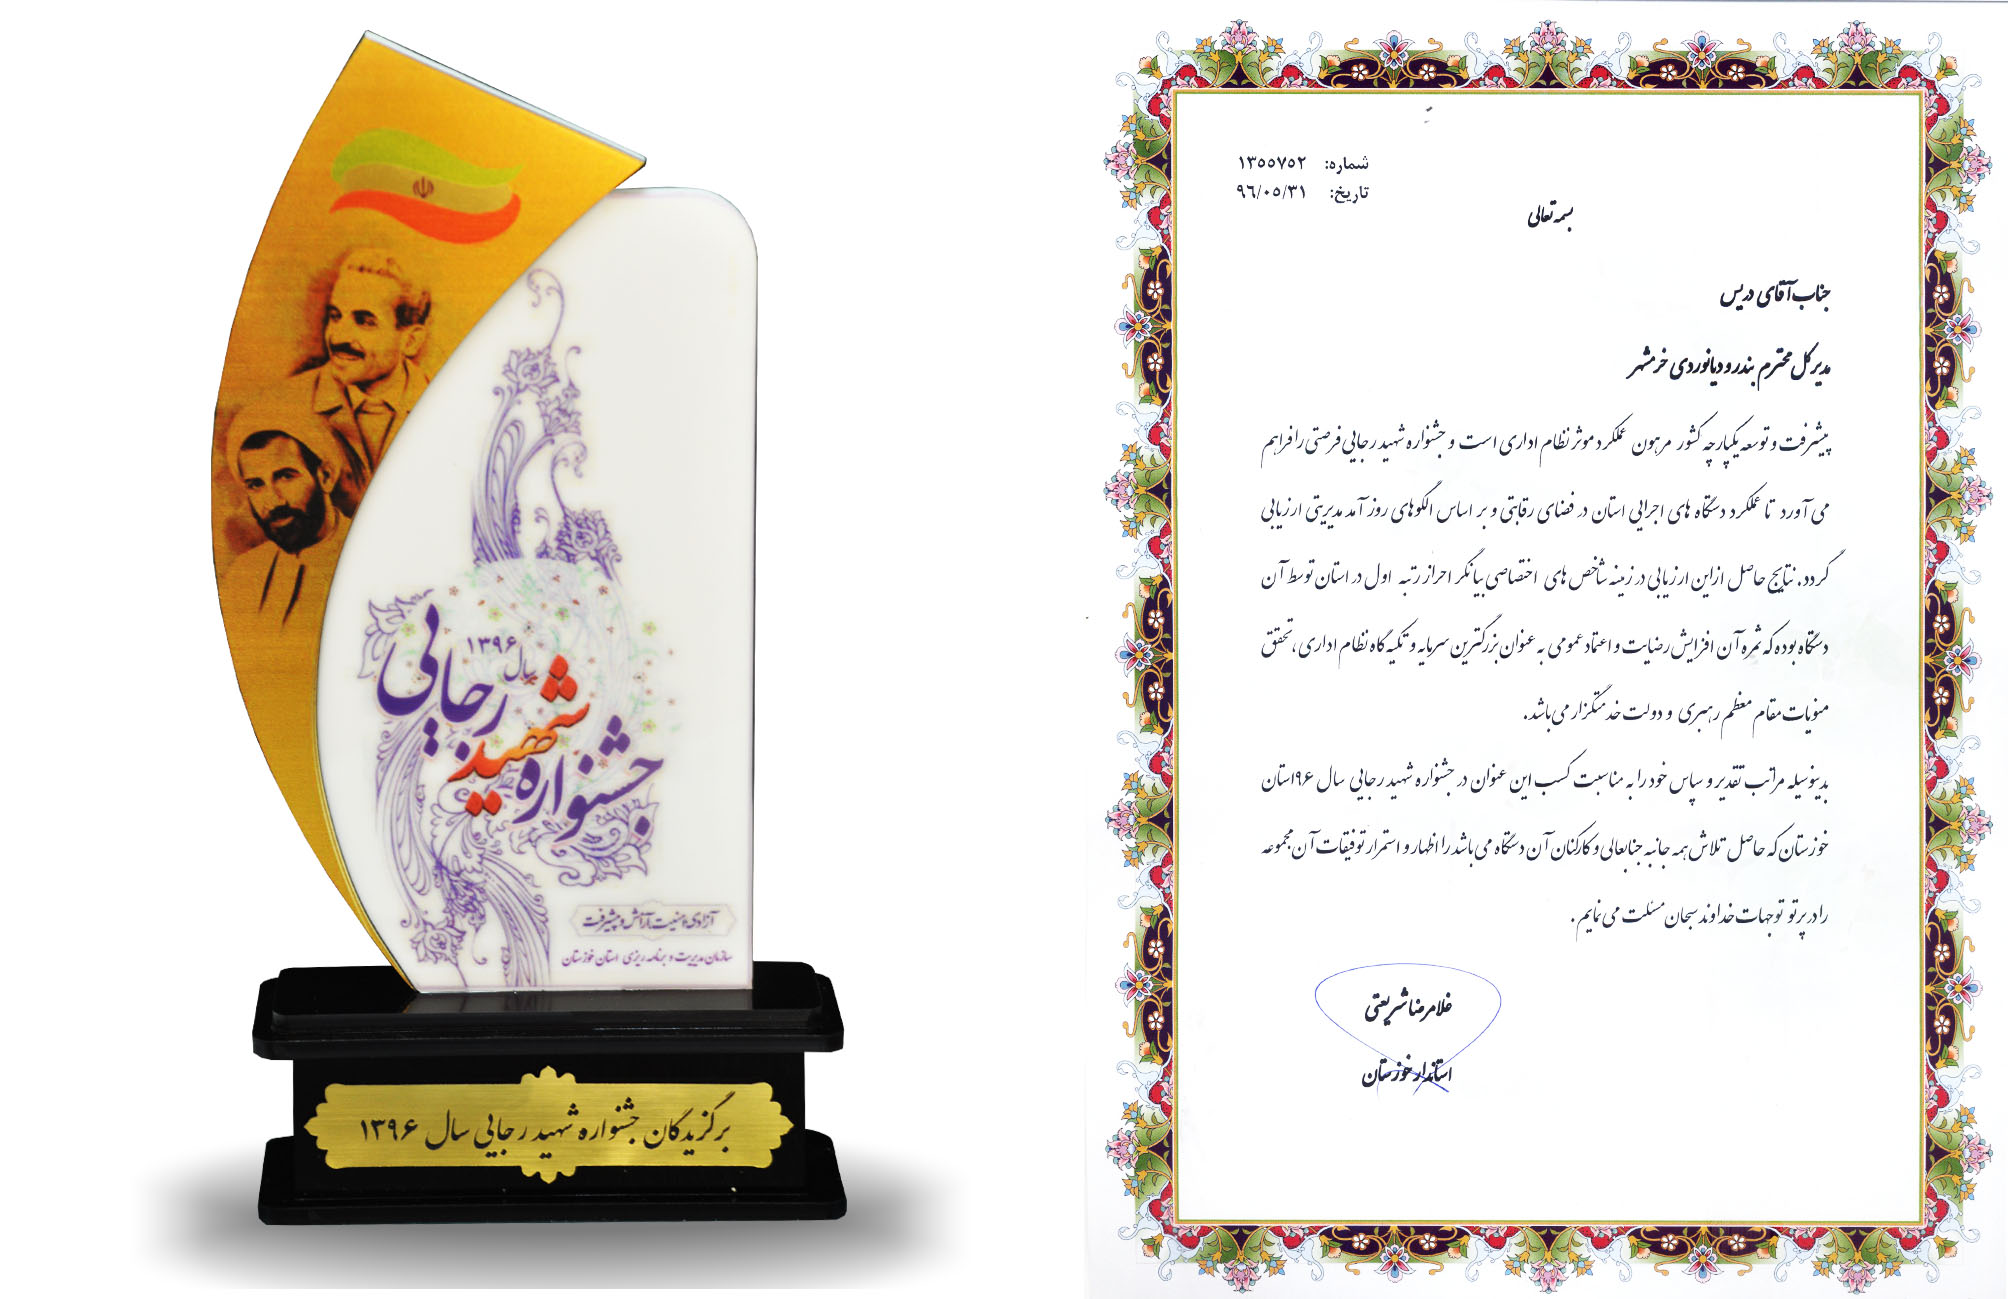 سال ۱۳۹۶
جشنواره شهید رجایی
آزادی و امنیت، آرامش و پیشرفت
سازمان مدیریت و برنامه ریزی استان خوزستان
برگزیدگان جشنواره شهید رجایی سال ۱۳۹۶
شماره: ۱۳۵۵۷۵۲
تاریخ: ۹۶/۰۵/۳۱
بسمه تعالی
جناب آقای دریس
مدیرکل محترم بندر و دریانوردی خرمشهر
پیشرفت و توسعه یکپارچه کشور مرهون عملکرد موثر نظام اداری است و جشنواره شهید رجایی فرصتی را فراهم
می آورد تا عملکرد دستگاه های اجرایی استان در فضای رقابتی و بر اساس الگوهای روزآمد مدیریتی ارزیابی
گردد. نتایج حاصل از این ارزیابی در زمینه شاخص های اختصاصی بیانگر احراز رتبه اول در استان توسط آن
دستگاه بوده که ثمره آن افزایش رضایت و اعتماد عمومی به عنوان بزرگترین سرمایه و تکیه گاه نظام اداری، تحقق
منویات مقام معظم رهبری و دولت خدمتگزار می باشد.
بدینوسیله مراتب تقدیر و سپاس خود را به مناسبت کسب این عنوان در جشنواره شهید رجایی سال ۹۶ استان
خوزستان که حاصل تلاش همه جانبه جنابعالی و کارکنان آن دستگاه می باشد را اظهار و استمرار توفیقات آن مجموعه
را در پرتو توجهات خداوند سبحان مسئلت می نمایم.
غلامرضا شریعتی
استاندار خوزستان